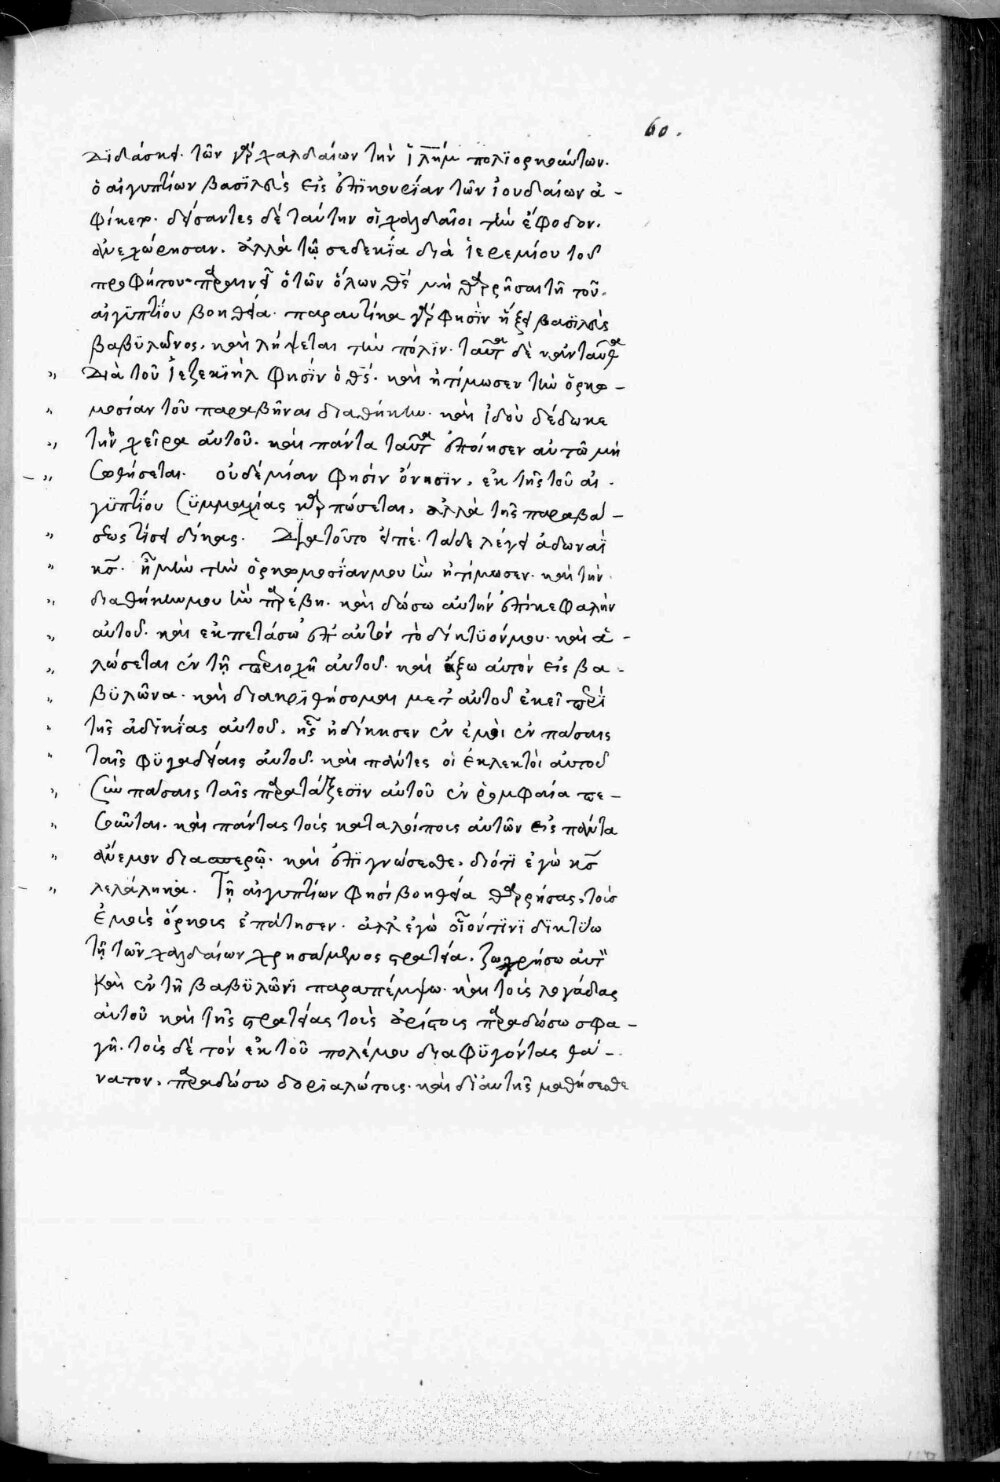 60.
διδάσκει· τῶν γὰρ χαλδαίων τὴν ἱλὴμ πολϊορκούντων·
ὁ αἰγυπτίων βασϊλεὺς εἰς ἐπϊκουρίαν τῶν ἰουδαίων ἀ-
φίκετο· δείσαντες δὲ ταύτην οἱ χαλδαῖοι τὴν ἔφοδον·
ἀνεχώρησαν· ἀλλὰ τῷ σεδεκίᾳ διὰ ἱερεμίου τοῦ
προφήτου παραινεῖ ὁ τῶν ὅλων θς μὴ θαρρῆσαι τῇ τοῦ
αἰγϋπτίου βοηθείᾳ· παραυτίκα γάρ φησὶν ἥξει βασϊλεὺς
βαβϋλῶνος, καὶ λήψεται τὴν πόλϊν· ταῦτα δὲ κἀνταῦθα
" Διὰ τοῦ ἰεζεκϊὴλ φησῒν ὁ θς· καὶ ἠτίμωσεν τὴν ὁρκω-
" μοσίαν τοῦ παραβῆναι διαθήκην· καὶ ἰδοὺ δέδωκε
" τὴν χεῖρα αὐτοῦ· καὶ πάντα ταῦτα ἐποίησεν αὐτῷ μὴ
" σωθήσεται· οὐδεμίαν φησὶν ὄνησϊν, ἐκ τῆς τοῦ αἰ-
γϋπτίου συμμαχίας καρπώσεται, ἀλλὰ τῆς παραβά-
" σεως τίσει δίκας· Διατοῦτο εἰπέ· τάδε λέγει ἀδωναῒ
" κς· ἦ μὴν τὴν ὁρκωμοσίαν μου ἣν ἠτίμωσεν· καὶ τὴν
" διαθήκην μου ἣν παρέβη· καὶ δώσω αὐτὴν ἐπὶ κεφαλὴν
" αὐτοῦ· καὶ ἐκπετάσω ἐπ' αὐτὸν τὸ δίκτϋόν μου· καὶ ἁ-
" λώσεται ἐν τῇ περιοχῇ αὐτοῦ· καὶ ἄξω αὐτὸν εἰς βα-
" βϋλῶνα· καὶ διακρϊθήσομαι μετ' αὐτοῦ ἐκεῖ περὶ
" τῆς ἀδϊκίας αὐτοῦ, ἧς ἠδίκησεν ἐν ἐμοὶ ἐν πάσαις
" ταῖς φϋγαδείαις αὐτοῦ· καὶ πάντες οἱ ἐκλεκτοὶ αὐτοῦ
" σὺν πάσαις ταῖς παρατάξεσϊν αὐτοῦ ἐν ῥομφαίᾳ πε-
" σοῦνται· καὶ πάντας τοὺς καταλοίπους αὐτῶν εἰς πάντα
" ἄνεμον διασπερῶ· καὶ ἐπϊγνώσεσθε, διότϊ ἐγὼ κς
" λελάληκα· Τῇ αἰγυπτίων φησὶ βοηθείᾳ θαρρήσας, τοὺς
ἐμοὺς ὅρκους ἐπάτησεν· ἀλλ' ἐγὼ οἷόν τϊνϊ δϊκτύῳ
τῇ τῶν χαλδαίων χρησάμενος στρατείᾳ· ζωγρήσω αὐτὸν
καὶ ἐν τῇ βαβϋλῶνϊ παραπέμψω· καὶ τοὺς λογάδας
αὐτοῦ καὶ τῆς στρατείας τοὺς ἀρίστους παραδώσω σφα-
γῇ· τοὺς δὲ τὸν ἐκ τοῦ πολέμου διαφϋγόντας θά-
νατον, παραδώσω δορϊαλώτους· καὶ δϊ' αὐτῆς μαθήσεσθε